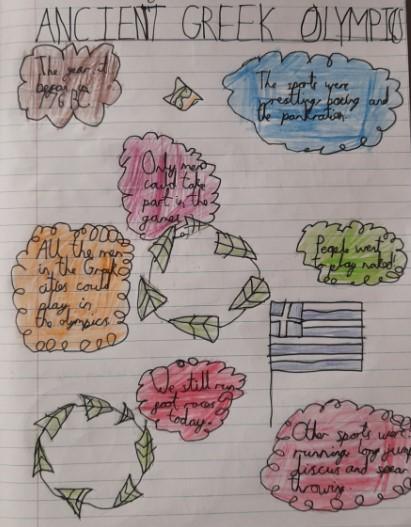 ANCIENT GREEK OLYMPICS
The year it
began is
776 BC.
The sports were
wrestling, boxing and
the pankration.
Only men
could take
part in the
games
All the men
in the Greek
cities could
play in
the olympics
People went
to play naked!
We still run
foot races
today.
Other sports were
running long jump
discus and spear
throwing